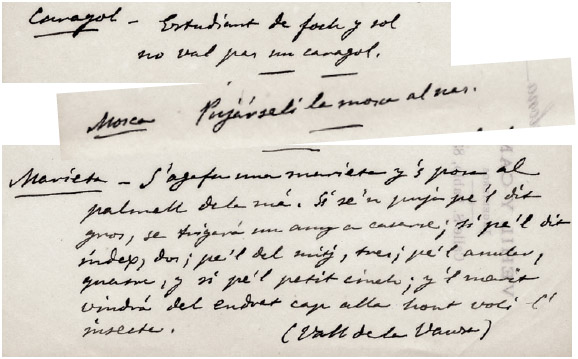 Caragol – Estudiant de foch y sol
no val pas un caragol.
Mosca Pujárseli la mosca al nas.
Marieta – S'agafa una marieta y's posa al
palmell de la má. Si se'n puja pe'l dit
gros, se trigará un any a casarse; si pe'l dit
índex, dos; pe'l del mitj, tres; pe'l anular,
quatre, y si pe'l petit cinch; y'l marit
vindrá del endret cap alla hont voli l'
insecte. (Vall de la Vansa)